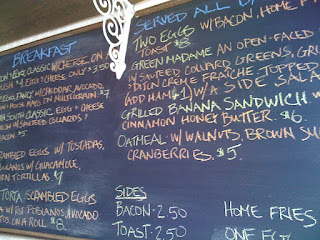 BREAKFAST
CLASSIC W/CHEESE ON
+ FETA CHEESE ONLY $3.50
EGG FANCY W/CHEDDAR, AVOCADO,
HOUSE MAYO ON MULTIGRAIN $7
SOUTH CLASSIC EGG + CHEESE
W/ SAUTEED COLLARDS +
BACON $5
SCRAMBLED EGGS W/ TOSTADAS,
POBLANOS W/ GUACAMOLE,
CORN TORTILLAS $7
TORTA SCRAMBLED EGGS
W/ POBLANOS, AVOCADO
ON A ROLL $8
SERVED ALL D
TWO EGGS W/ BACON, HOME F
TOAST $8
GREEN MADAME AN OPEN-FACED
W/ SAUTEED COLLARD GREENS, GRU
DIJON CREME FRAICHE TOPPED
(ADD HAM $1) W/ A SIDE SALA
GRILLED BANANA SANDWICH W
CINNAMON HONEY BUTTER. $6.
OATMEAL W/ WALNUTS, BROWN SU
CRANBERRIES. $5.
SIDES
BACON 2.50
TOAST 2.50
HOME FRIES
ONE EGG